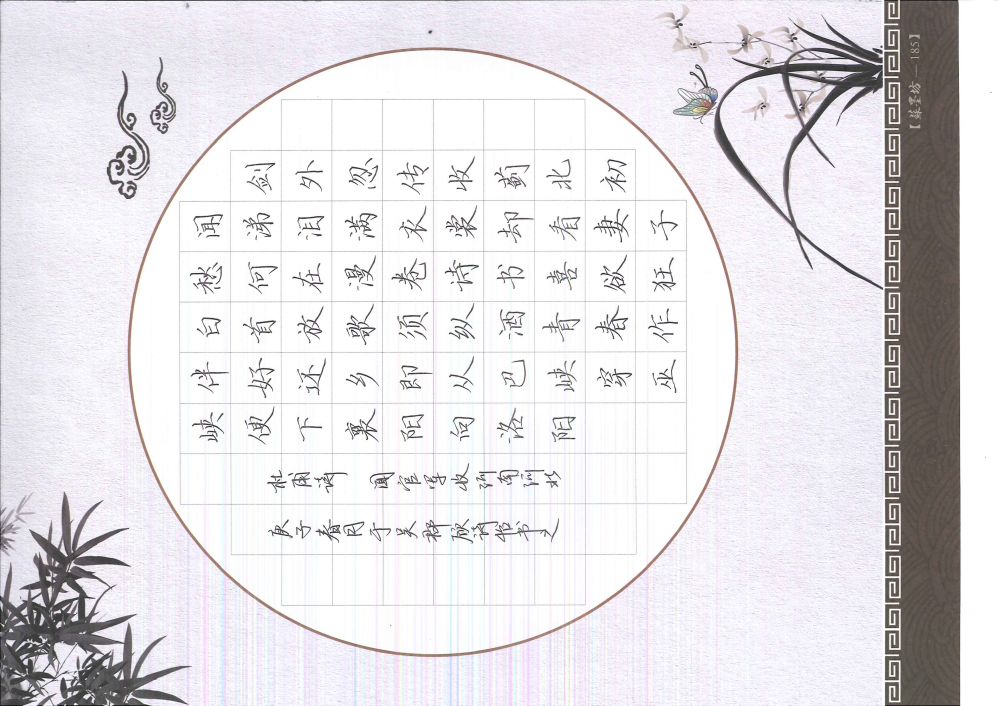 剑外忽传收蓟北初
闻涕泪满衣裳却看妻子
愁何在漫卷诗书喜欲狂
白首放歌须纵酒青春作
伴好还乡即从巴峡穿巫
峡便下襄阳向洛阳
杜甫诗 闻官军收河南河北
庚子春月于吴郡书之
【蘇墨坊—185】